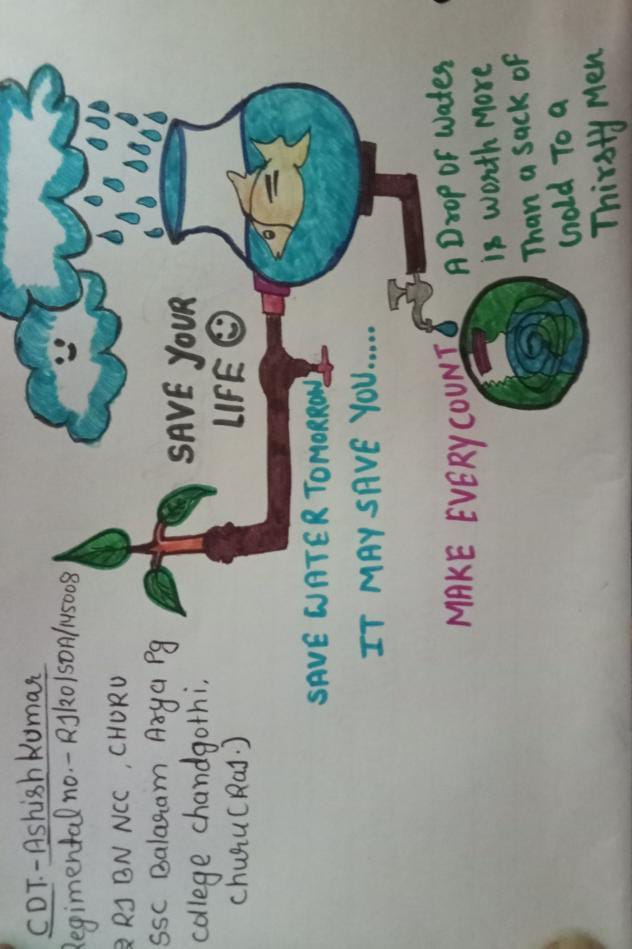 CDT.- Ashish Kumar
Regimental no.- RJ/20/SDA/145008
2 RJ BN NCC , CHURU
SSC Balaram Arya Pg
College chandgothi,
churu(Raj.)
SAVE YOUR
LIFE
SAVE WATER TOMORROW
IT MAY SAVE YOU.....
MAKE EVERY COUNT
A Drop OF Water
is worth More
Than a sack of
Gold To a
Thirsty Men